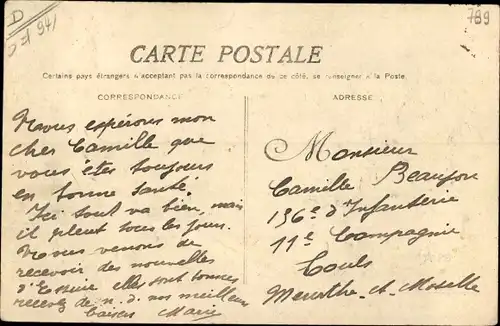 D
789
CARTE POSTALE
Certains pays étrangers n'acceptant pas la correspondance de ce côté, se renseigner à la Poste
CORRESPONDANCE
Nous espérons mon
cher Camille que
vous êtes toujours
en bonne santé.
Ici tout va bien, mais
il pleut tous les jours.
Nous venons de
recevoir des nouvelles
elles sont bonnes
recevez de n. d. nos meilleurs
baisers Marie
ADRESSE
Monsieur
Camille
136e d'Infanterie
11e Compagnie
Meurthe-et-Moselle